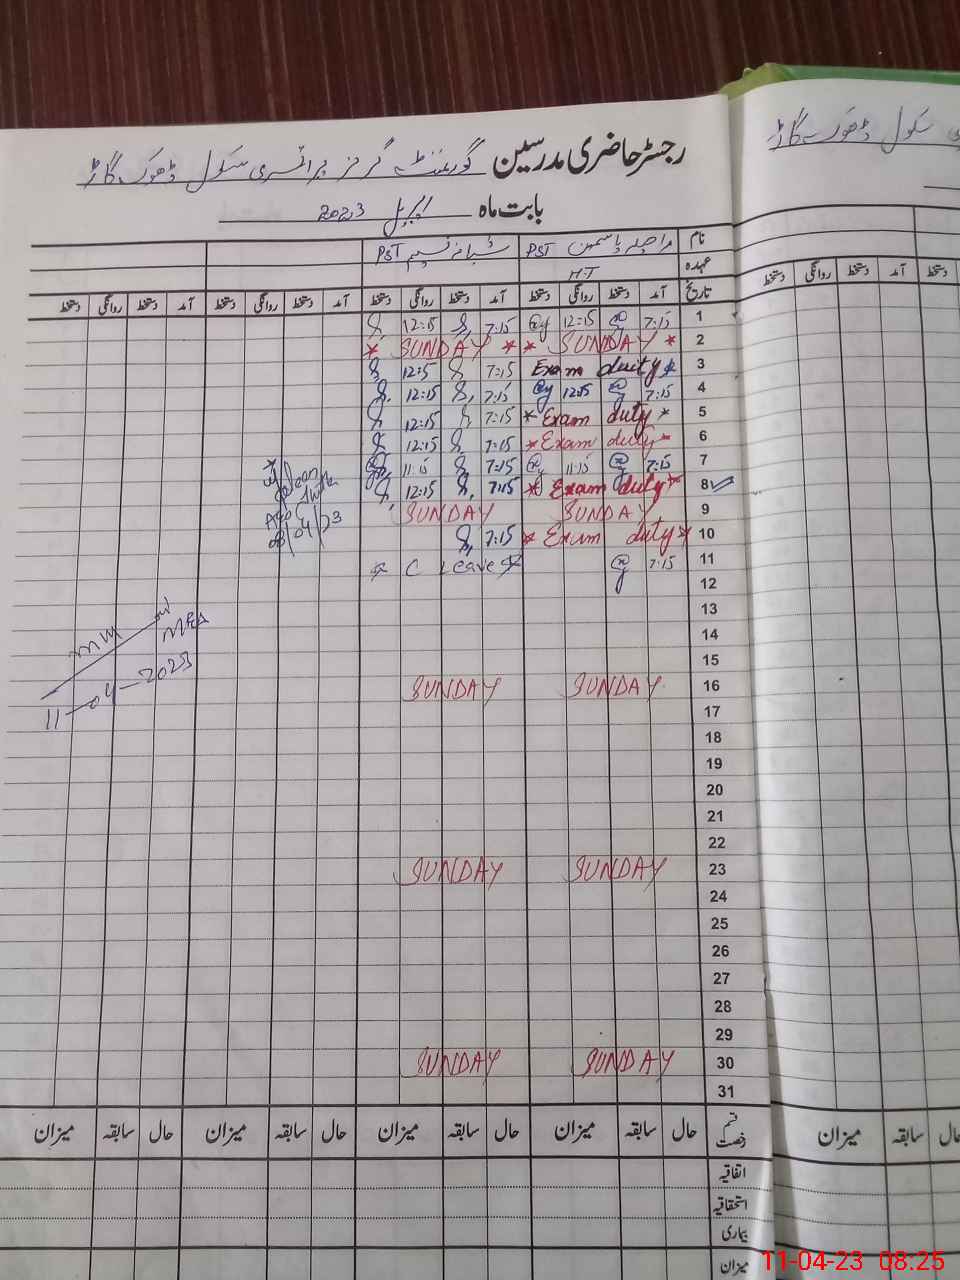 رجسٹر حاضری مدرسین گورنمنٹ گرلز پرائمری سکول ڈھوک گاڑ
سکول ڈھوک گاڑ
بابت ماہ اپریل 2023
نام یاسمین PST شبانہ نسیم PST
عہدہ HT
تاریخ آمد دستخط روانگی دستخط آمد دستخط روانگی دستخط آمد دستخط روانگی دستخط آمد دستخط روانگی دستخط
دستخط آمد دستخط روانگی دستخط
1 7:15 12:15 7:15 12:15
2 * SUNDAY * * SUNDAY *
3 Exam duty * 7:15 12:15
4 7:15 12:15 7:15 12:15
5 * Exam duty * 7:15 12:15
6 * Exam duty * 7:15 12:15
7 7:15 11:15 7:15 11:15
8 * Exam duty * 7:15 12:15
9 SUNDAY SUNDAY
08/04/23
10 * Exam duty * 7:15
11 7:15 * C Leave *
12
13
14
MEA
15
11-04-2023
16 SUNDAY SUNDAY
17
18
19
20
21
22
23 SUNDAY SUNDAY
24
25
26
27
28
29
30 SUNDAY SUNDAY
31
قسم رخصت حال سابقہ میزان حال سابقہ میزان حال سابقہ میزان حال سابقہ میزان
حال سابقہ میزان
اتفاقیہ
استحقاقیہ
بیماری
میزان
11-04-23 08:25